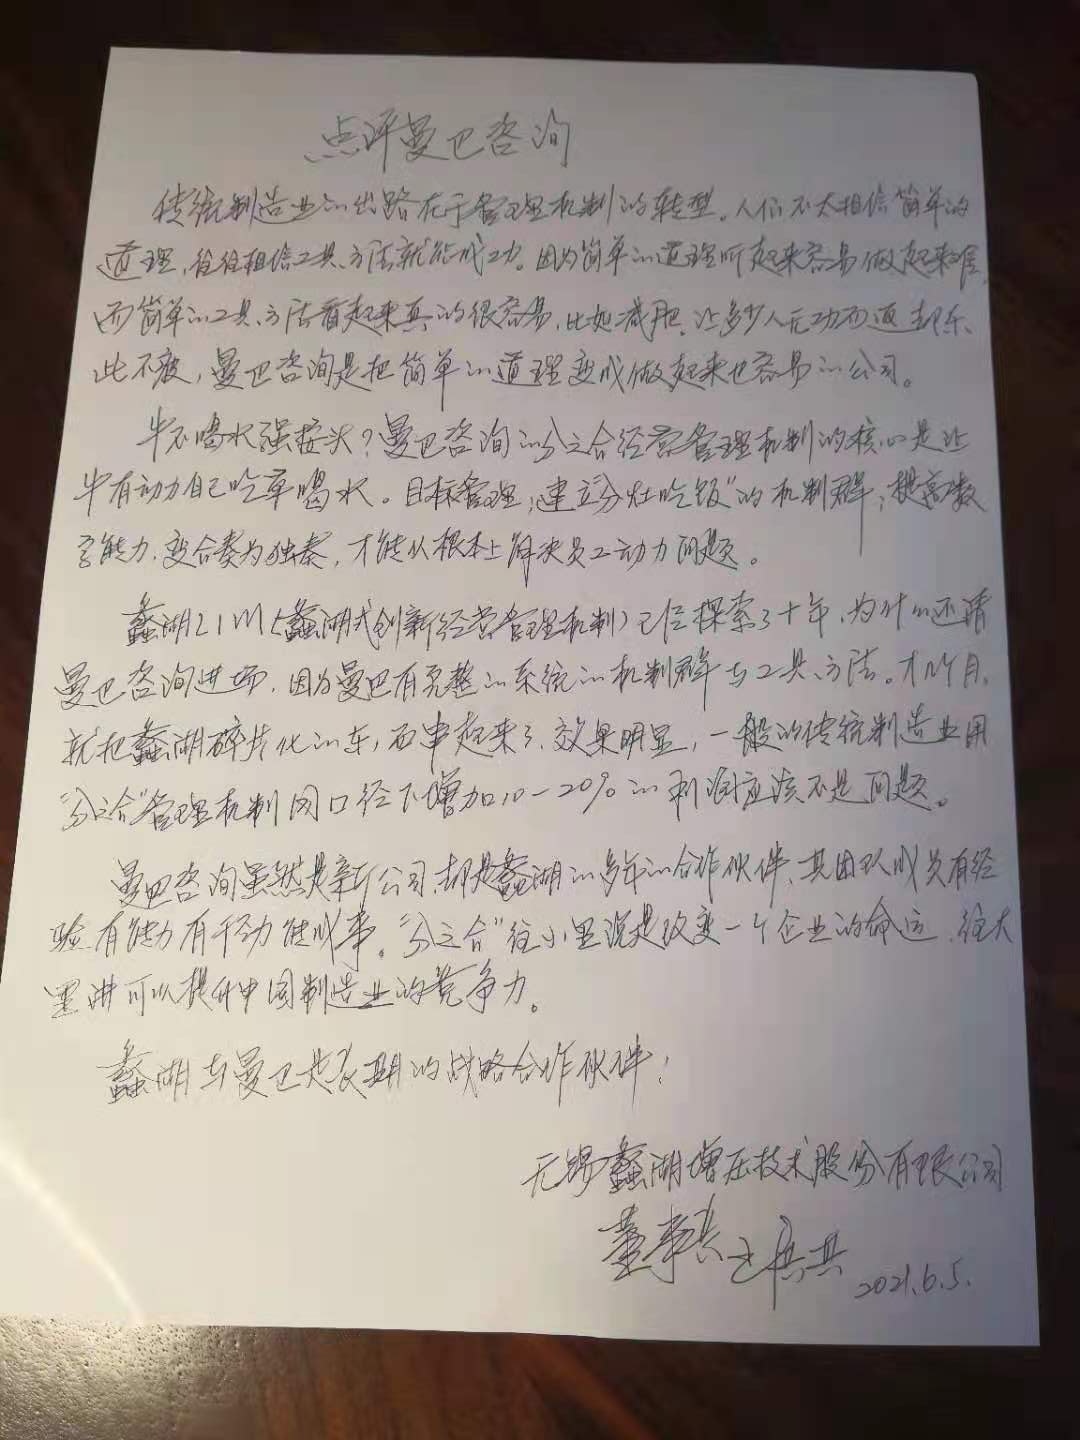 点评曼巴咨询
传统制造业的出路在于管理机制的转型。人们不太相信简单的
道理，往往相信工具、方法就能成功。因为简单的道理听起来容易做起来难，
而简单的工具、方法看起来真的很容易，比如减肥，让多少人无功而返却乐
此不疲，曼巴咨询是把简单的道理变成做起来也容易的公司。
牛不喝水强按头？曼巴咨询的分之合经营管理机制的核心是让
牛有动力自己吃草喝水。目标管理，建立"分灶吃饭"的机制群，提高数
字能力，变合奏为独奏，才能从根本上解决员工动力问题。
蠡湖（蠡湖式创新经营管理机制）已经探索了十年，为什么还请
曼巴咨询进场，因为曼巴有完整的系统的机制群与工具、方法。才几个月，
就把蠡湖碎片化的东西串起来了，效果明显，一般的传统制造业用
"分之合"管理机制同口径下增加10-20%的利润应该不是问题。
曼巴咨询虽然是新公司，却是蠡湖的多年的合作伙伴，其团队成员有经
验有能力有干劲能成事。"分之合"往小里说是改变一个企业的命运，往大
里讲可以提升中国制造业的竞争力。
蠡湖与曼巴是长期的战略合作伙伴！
无锡蠡湖增压技术股份有限公司
董事长 王洪其 2021.6.5.